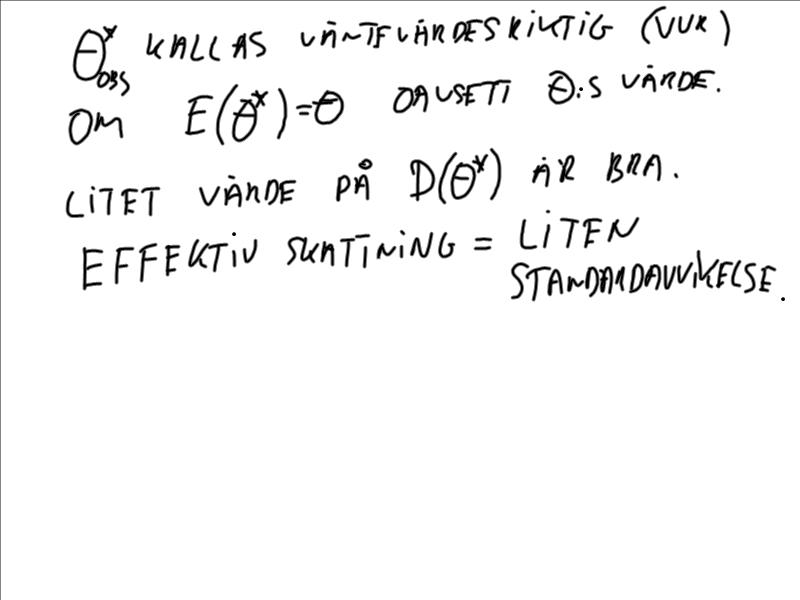 θ*OBS KALLAS VÄNTEVÄRDESRIKTIG (VVR)
OM E(θ*)=θ OAVSETT θ:S VÄRDE.
LITET VÄRDE PÅ D(θ*) ÄR BRA.
EFFEKTIV SKATTNING = LITEN
STANDARDAVVIKELSE.